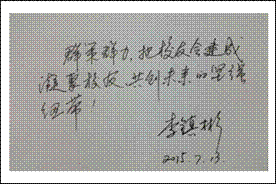 群策群力,把校友会建成
凝聚校友、共创未来的坚强
纽带!
李镇彬
2015.7.13